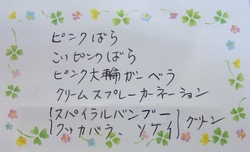 ピンクばら
こいピンクばら
ピンク大輪ガーベラ
クリームスプレーカーネーション
スパイラルバンブー
クッカバラ、ソケイ グリーン